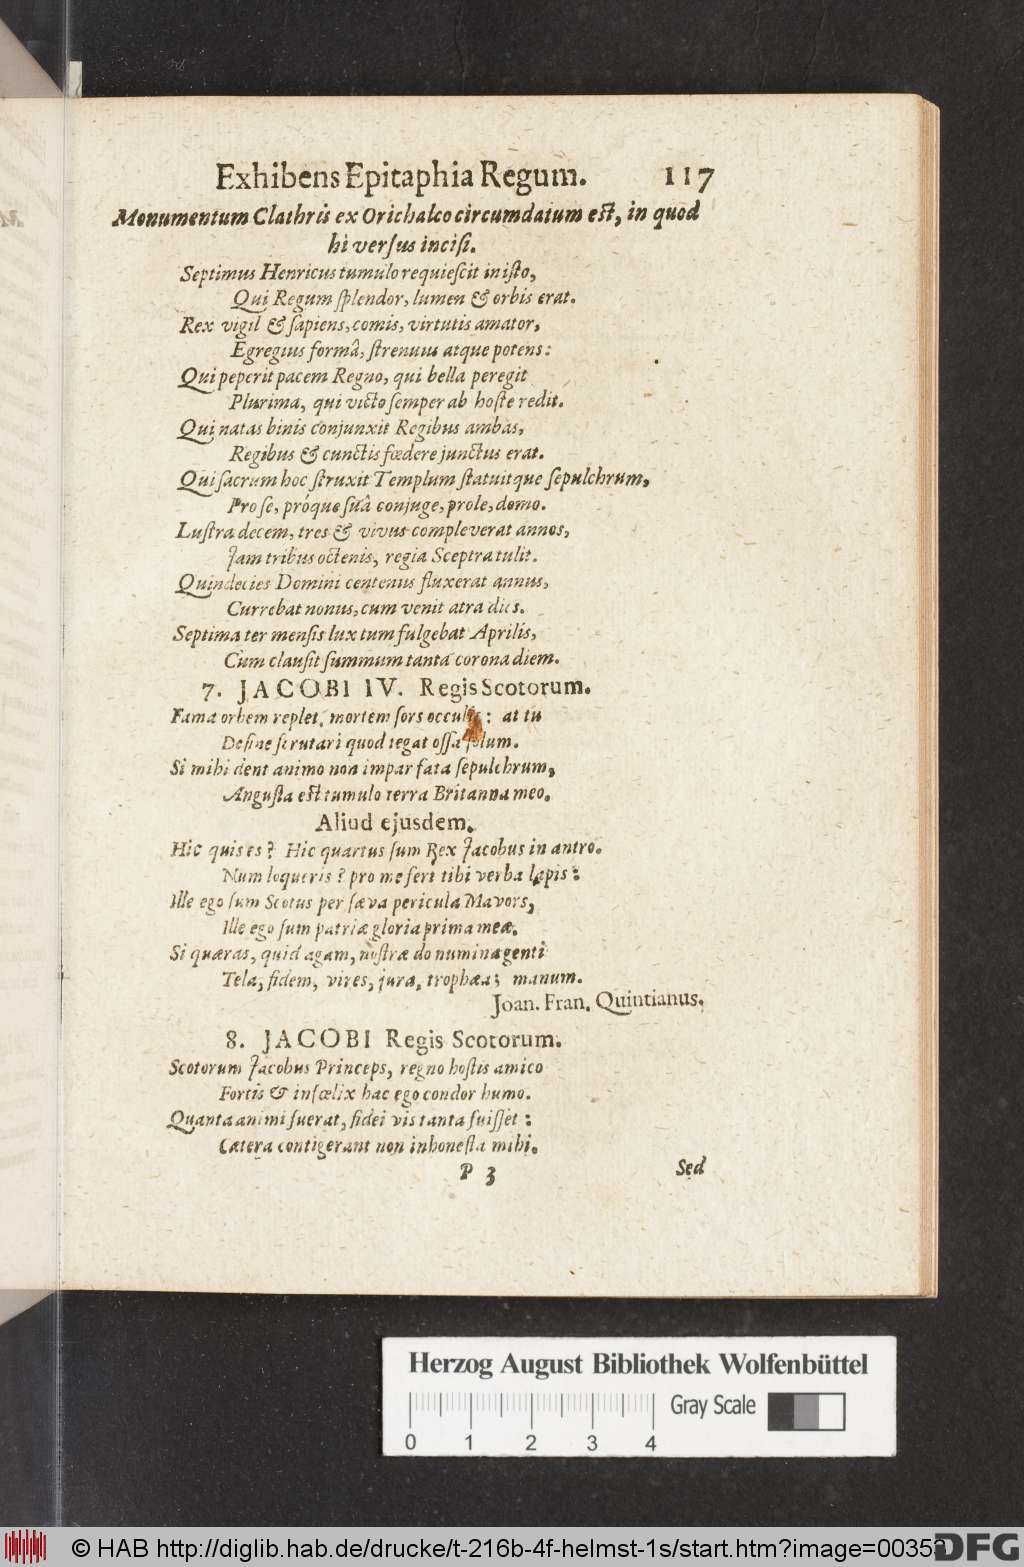 Exhibens Epitaphia Regum. 117
Monumentum Clathris ex Orichalco circumdatum est, in quod
hi versus incisi.
Septimus Henricus tumulo requiescit in isto,
Qui Regum splendor, lumen & orbis erat.
Rex vigil & sapiens, comis, virtutis amator,
Egregius formâ, strenuus atque potens:
Qui peperit pacem Regno, qui bella peregit
Plurima, qui victo semper ab hoste redit.
Qui natas binis conjunxit Regibus ambas,
Regibus & cunctis fœdere junctus erat.
Qui sacrum hoc struxit Templum statuitque sepulchrum,
Pro se, próque suâ conjuge, prole, domo.
Lustra decem, tres & vivus compleverat annos,
Jam tribus octenis, regia Sceptra tulit.
Quindecies Domini centenus fluxerat annus,
Currebat nonus, cum venit atra dies.
Septima ter mensis lux tum fulgebat Aprilis,
Cum clausit summum tanta corona diem.
7. JACOBI IV. Regis Scotorum.
Fama orbem replet, mortem sors occulit: at tu
Desine scrutari quod tegat ossa solum.
Si mihi dent animo non impar fata sepulchrum,
Angusta est tumulo terra Britanna meo.
Aliud ejusdem.
Hic quis es? Hic quartus sum Rex Jacobus in antro.
Num loqueris? pro me fert tibi verba lapis:
Ille ego sum Scotus per sæva pericula Mavors,
Ille ego sum patriæ gloria prima meæ.
Si quæras, quid agam, nostræ do numina genti
Tela, fidem, vires, jura, trophæa; manum.
Joan. Fran. Quintianus.
8. JACOBI Regis Scotorum.
Scotorum Jacobus Princeps, regno hostis amico
Fortis & infœlix hac ego condor humo.
Quanta animi fuerat, fidei vis tanta fuisset:
Cætera contigerant non inhonesta mihi.
P 3 Sed
Herzog August Bibliothek Wolfenbüttel
Gray Scale
0 1 2 3 4
© HAB http://diglib.hab.de/drucke/t-216b-4f-helmst-1s/start.htm?image=00353
DFG